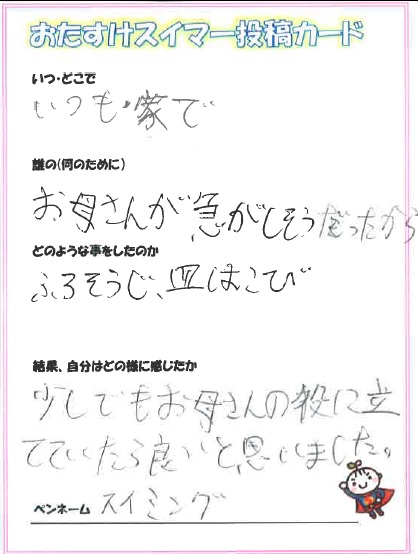 おたすけスイマー投稿カード
いつ・どこで
いつも・家で
誰の(何のために)
お母さんが急がしそうだったから
どのような事をしたのか
ふろそうじ、皿はこび
結果、自分はどの様に感じたか
少しでもお母さんの役に立
てていたら良いと思いました。
ペンネーム スイミング